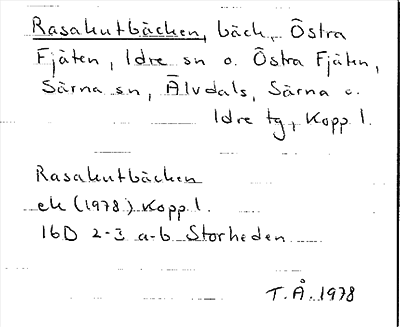 Rasakutbäcken, bäck, Östra
Fjäten, Idre sn o. Östra Fjäten,
Särna sn, Älvdals, Särna o.
Idre tg, Kopp l.
Rasakutbäcken
ek (1978) Kopp l.
16D 2-3 a-b Storheden
T.Å. 1978